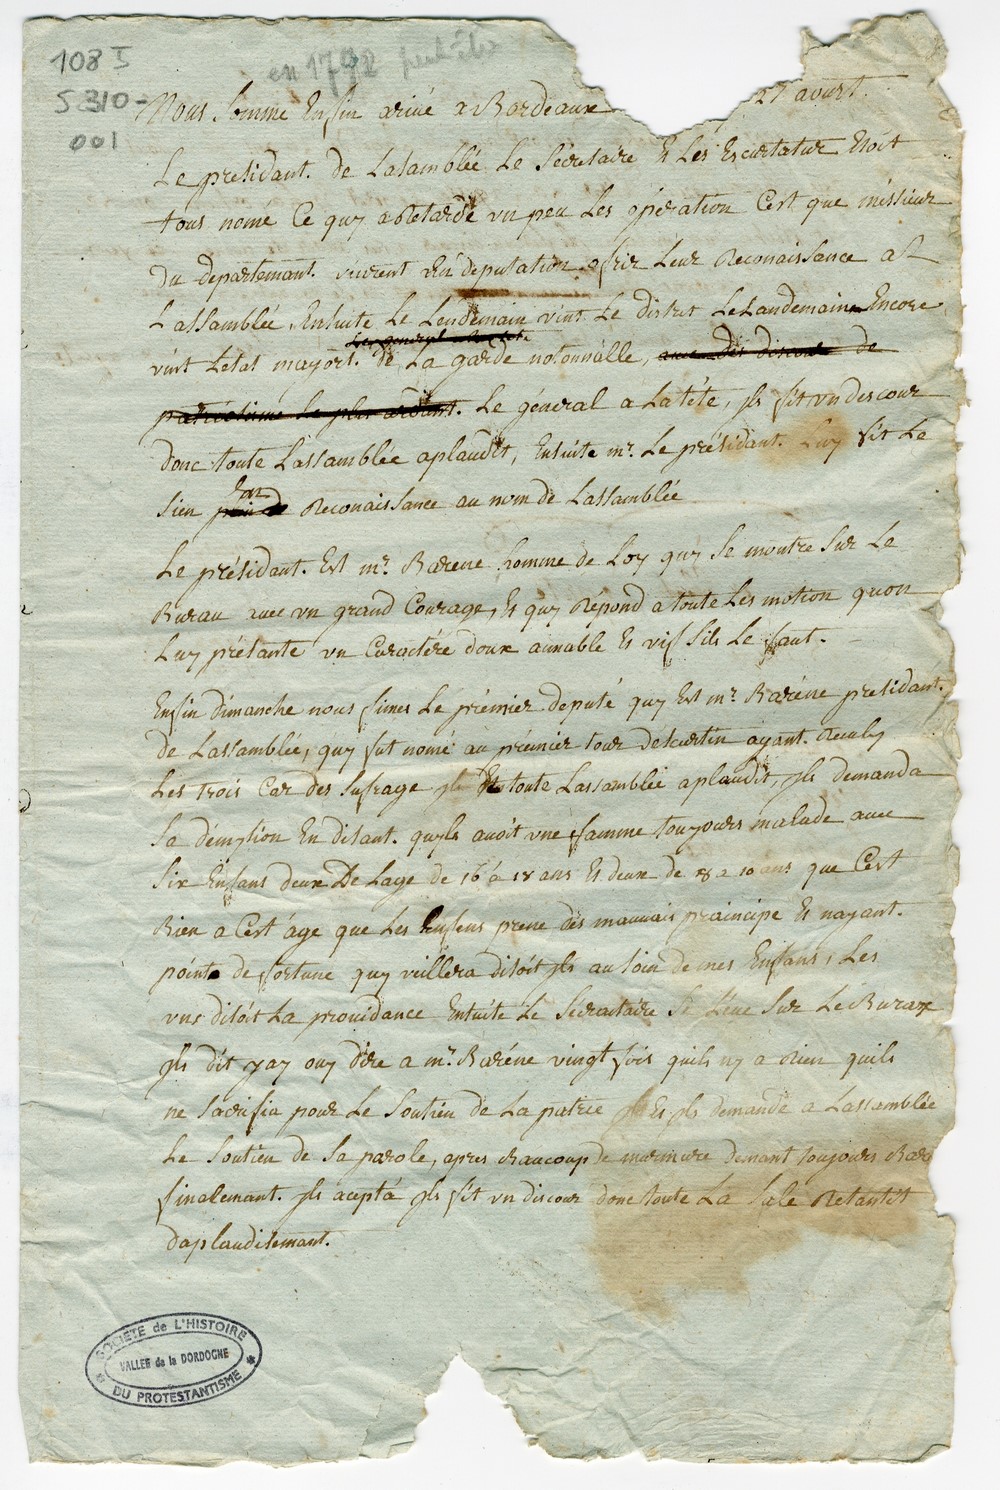 108 I
5 310 -
001
en 1792 peut-être
Nous somme Enfin arivé a Bordeaux 27 avurt.
Le presidant. de Lasamblée Le Sécretaire Es Les Escurtatur Etoit
tous nomé Ce quy a Retardé un peu Les opération Cest que méssieur
Du departemant. vinrent En deputation ofrir Leur Reconaissance a
Lassamblée, Ensuite Le Lendemain vint Le distrit Le Landemain Encore
Les général a la tete
vint Letat mayort. de La garde notionnalle, avec des discour de
patriotisme Le plus ardant. Le général a La téte, jls fit un descour
donc toute Lassamblée aplaudit, Ensuite mr. Le présidant. Luy fit Le
Sien En Reconaissance au nom de Lassamblée
Le présidant. Est mr. Barene homme de Loy quy Se montre Sur Le
Burau avec un grand Courage, Es quy Répond a toute Les motion quon
Luy présante un Caractére doux aimable Es vif Sils Le faut.
Enfin dimanche nous fimes Le prémier deputé quy Est mr. Baréne presidant.
de Lassamblée, quy fut nomé au prémier tour deScurtin ayant. Reuny
Les trois Car des Sufrage Et toute Lassamblée aplaudit, jls demanda
Sa démition En disant. quyls avoit une famme toujours malade avec
Six Enfans deux De Lage de 16 a 18 ans Es deux de 8 a 10 ans que Cest
Bien a Cest âge que Les Enfens prene des mauvais praincipe Es nayant.
point de fortune quy veillera disoit jls au soin de mes Enfans, Les
uns disoit La providance Ensuite Le Sécraitaire Se Léve Sur Le Buraux
jls dit jay ouy dire a mr. Baréne vingt fois quils ny a Rien quils
ne Sacrifia pour Le Soutien de La patrie Es jls demande a Lassamblée
Le Soutien de Sa parole, apres Baucoup de murmure demant toujours Baré
finalemant. jls acepta jls fit un discour donc toute La Sale Retantit
daplaudisemant.
SOCIÉTÉ de L'HISTOIRE
VALLEE de la DORDOGNE
DU PROTESTANTISME